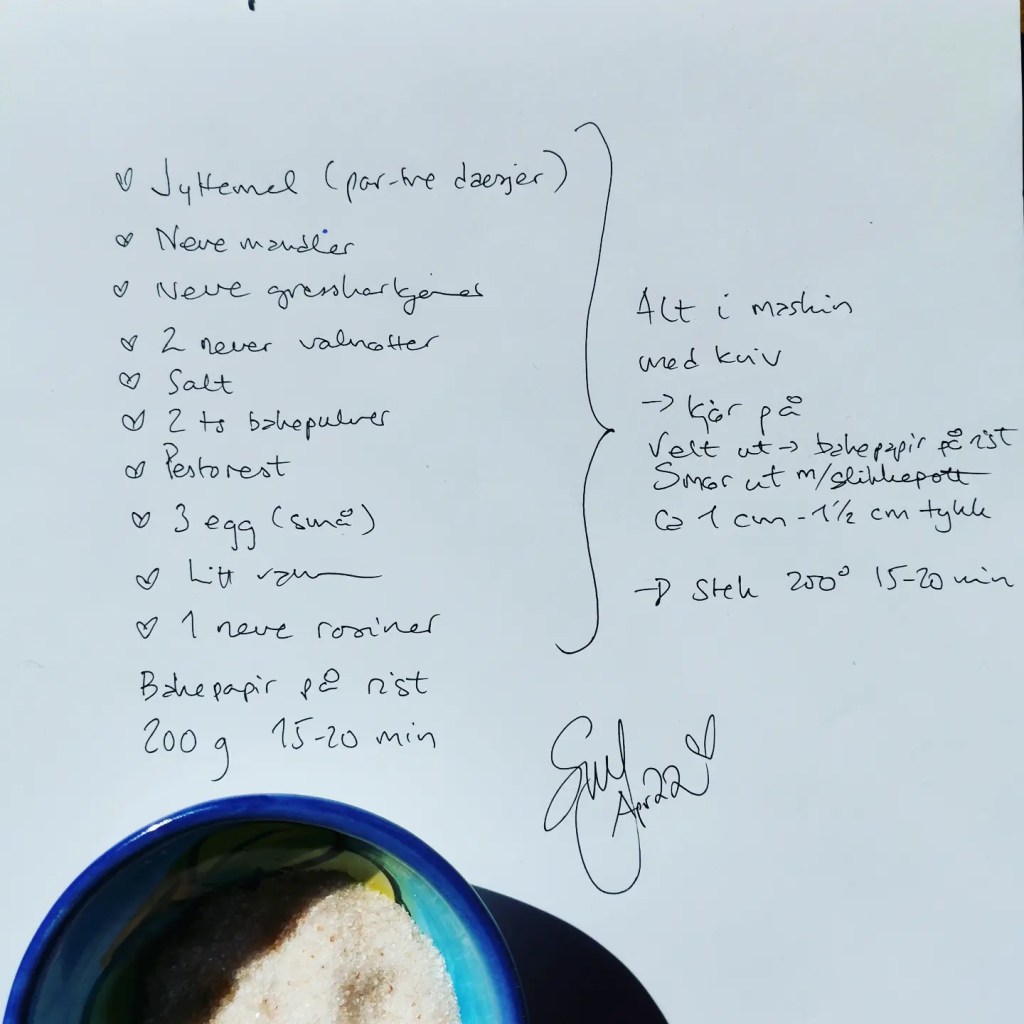 Jyttemel (par-tre dæsjer)
Neve mandler
Neve gresskarkjerner
2 never valnøtter
Salt
2 ts bakepulver
Pestorest
3 egg (små)
Litt vann
1 neve rosiner
Bakepapir på rist
200 g 15-20 min
Alt i maskin
med kniv
→ kjør på
Velt ut → bakepapir på rist
Smør ut m/slikkepott
Ca 1 cm - 1½ cm tykk
→ Stek 200° 15-20 min
Apr 22